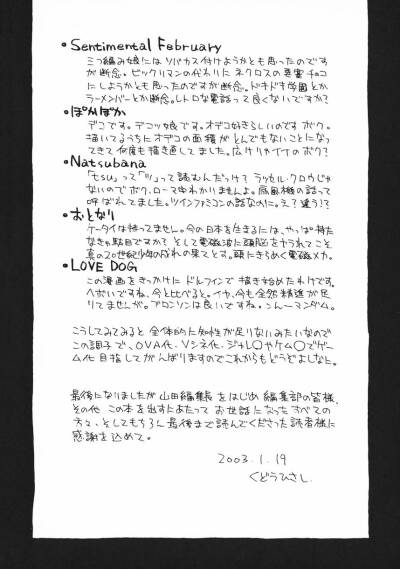 •Sentimental February
三つ編み娘にはソバカス付けようかとも思ったのです
が断念。ビックリマンの代わりにネクロスの要塞チョコ
にしようかとも思ったのですが断念。ドキドキ学園とか
ラーメンバーとか断念。レトロな電話って良くないですか?
•ぽかぽか
デコです。デコッ娘です。オデコ好きらしいのですボク。
描いてるうちにオデコの面積がとんでもないことになっ
てきて何度も描き直してました。広げりャイイのボク?
•Natsubana
「tsu」って「ツ」って読むんだっけ? ラッセル・クロウじゃ
ないのでボク、ローマ字わかりませんよ。扇風機の話って
呼ばれてました。ツインファミコンの話なのに。え?違う!?
•おとなり
ケータイは持ってません。今の日本を生きるには、やっぱ持た
なきゃ駄目ですか? として電磁波に頭脳をヤラれてこそ
真の20世紀少年の成れの果てとす。頭にきらめく電磁メカ。
•LOVE DOG
この漫画をきっかけにドルフィンで描き始めたわけです。
ヘボいですね、今と比べると。イヤ、今も全然精進が足
りてませんが。ブロンソンは良いですね。うーんマンダム。
こうしてみてみると全体的に知性が足りないみたいなので
この調子で、OVA化、Vシネ化、ジャレ○やケム○でゲー
ム化目指してがんばりますのでこれからもどうぞよしなに。
最後になりましたが山田編集長をはじめ編集部の皆様、
その他この本を出すにあたってお世話になったすべての
方々、そしてもちろん最後まで読んでくださった読者様に
感謝を込めて。
2003.1.19
くどうひさし